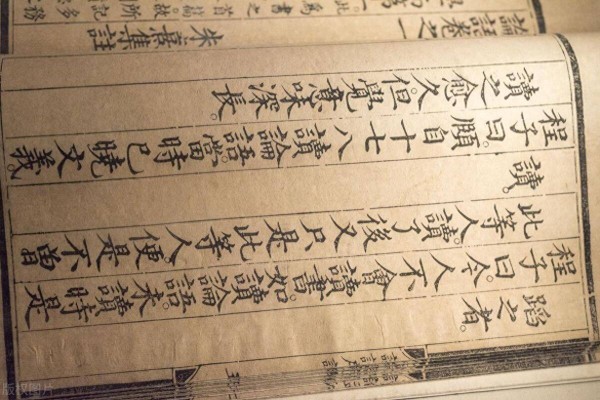 蹈之者。
程子曰。今人不會讀書。如讀論語。未讀時是
此等人。讀了後又只是此等人。便是不曾
讀。
程子曰。頤自十七八讀論語。當時已曉文義。
讀之愈久。但覺意味深長。
論語卷之一
朱熹集註
此為書之首篇。故所記多務
版权图片